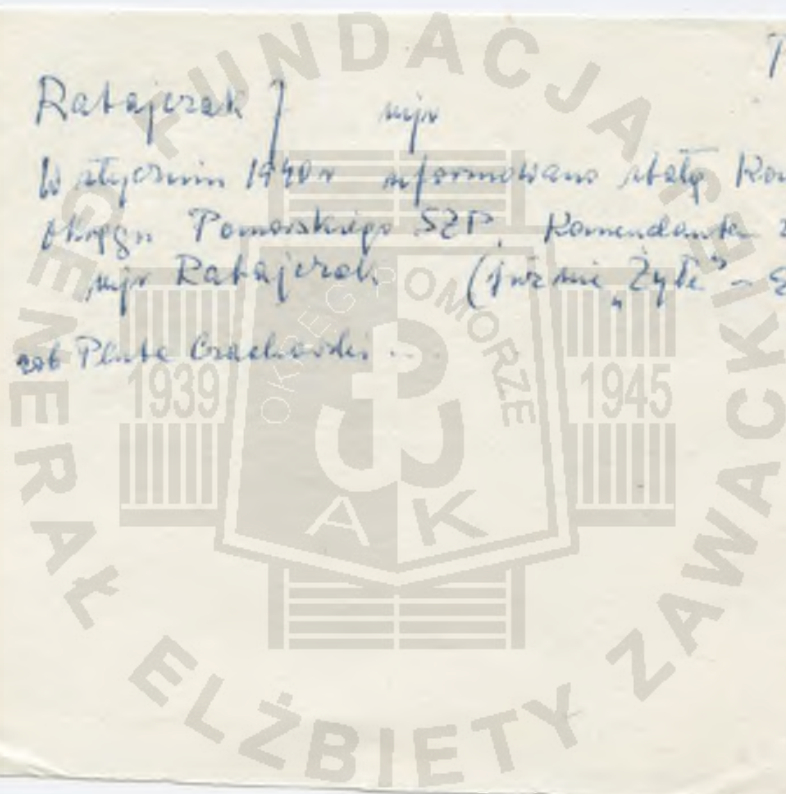 Ratajczak] mjr
W styczniu 1940 r uformowano stałą
Okręgu Pomorskiego SZP. Komendanta
mjr Ratajczak (już nie „Żyłę” –
zob Pluta Czachowski ...
FUNDACJA
GENERAŁ ELŻBIETY ZAWACKIEJ
OKRĘG POMORZE
1939 1945
AK